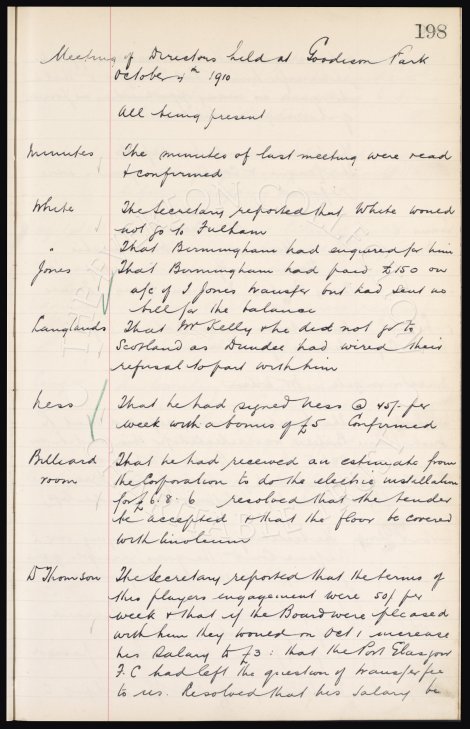 198
Meeting of Directors held at Goodison Park
October 4th 1910
All being present
Minutes The minutes of last meeting were read
& confirmed
White The Secretary reported that White would
not go to Fulham
" That Birmingham had enquired for him
Jones That Birmingham had paid £150 on
a/c of J Jones transfer but had sent us
bill for the balance
Langlands That Mr Kelly & he did not go to
Scotland as Dundee had wired their
refusal to part with him
Ness That he had signed Ness @ 45/- per
week with a bonus of £5 Confirmed
Billiard That he had received an estimate from
room the Corporation to do the electric installation
for £6:8:6 resolved that the tender
be accepted & that the floor be covered
with linoleum
D Thomson The Secretary reported that the terms of
this players engagement were 50/ per
week & that if the Board were pleased
with him they would on Oct 1 increase
his salary to £3: that the Port Glasgow
F.C had left the question of transfer fee
to us. Resolved that his salary be